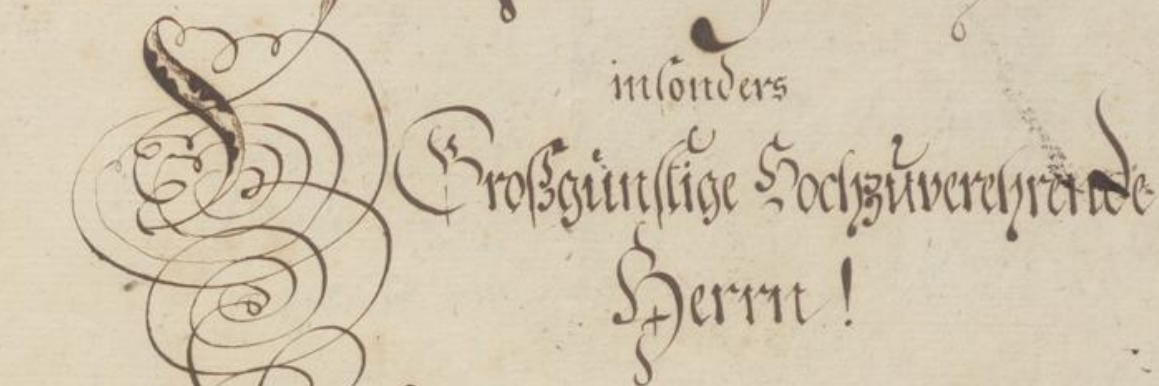 insonders
Großgünstige Hochzuverehrende
Herrn!